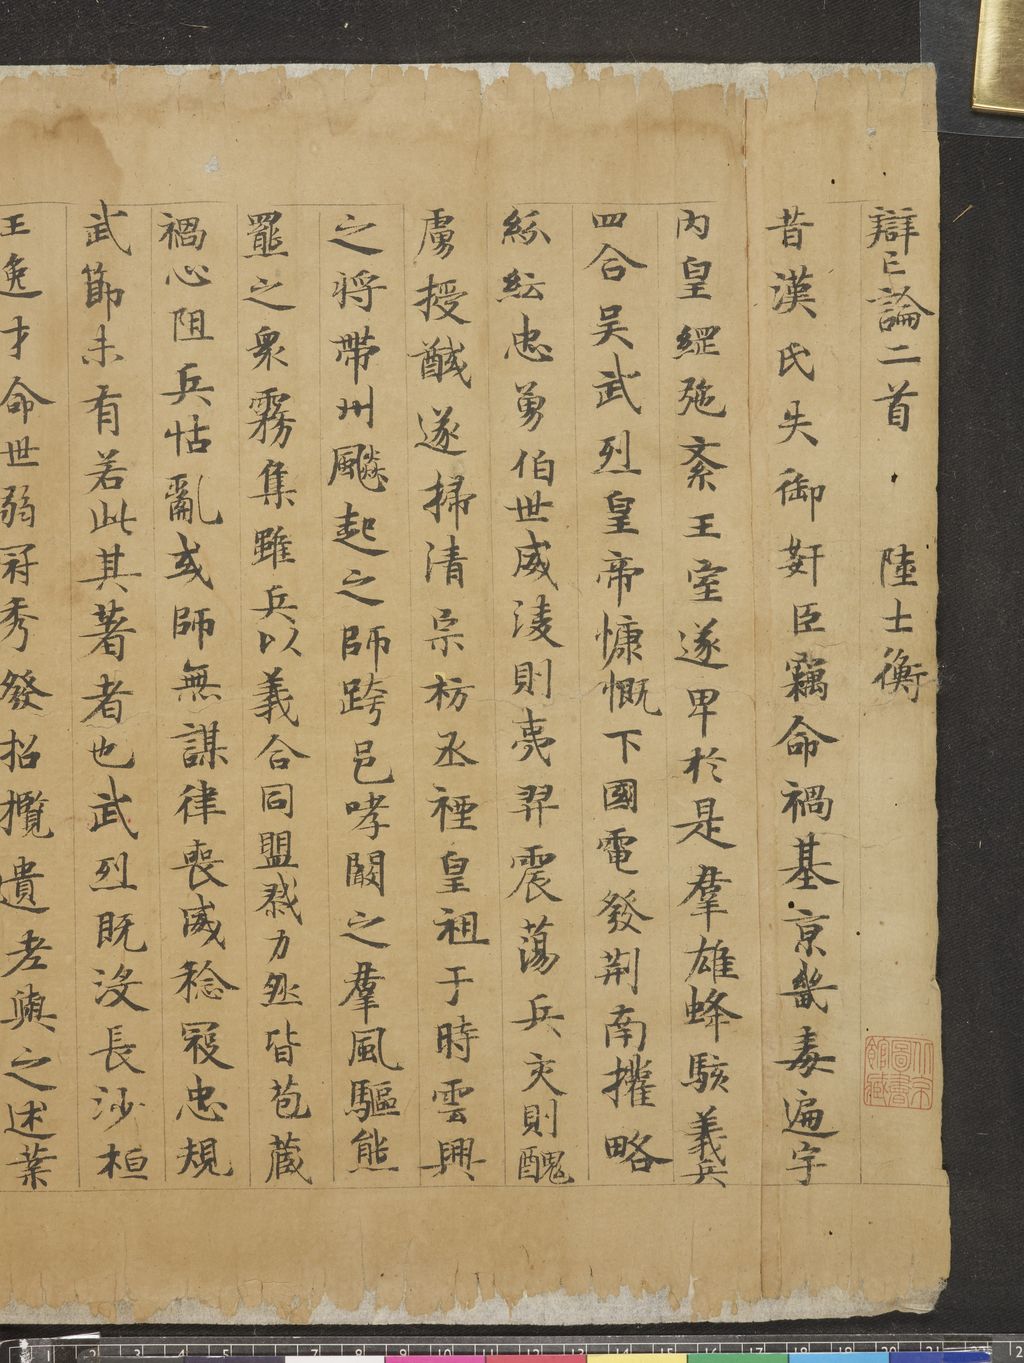 辯亡論二首 陸士衡
昔漢氏失御姧臣竊命禍基京畿毒遍宇
內皇綱弛紊王室遂卑於是羣雄蜂駭義兵
四合吴武烈皇帝慷慨下國電發荆南擢略
紛紜忠勇伯世威淩則夷羿震蕩兵交則醜
虜授馘遂掃清宗枋丞禋皇祖于時雲興
之將帶州飈起之師跨邑哮闞之羣風驅熊
羆之衆霧集雖兵以義合同盟勠力然皆苞藏
禍心阻兵怙亂或師無謀律喪威稔寇忠規
武節未有若此其著者也武烈既沒長沙桓
王逸才命世弱冠秀發招攬遺老與之述業